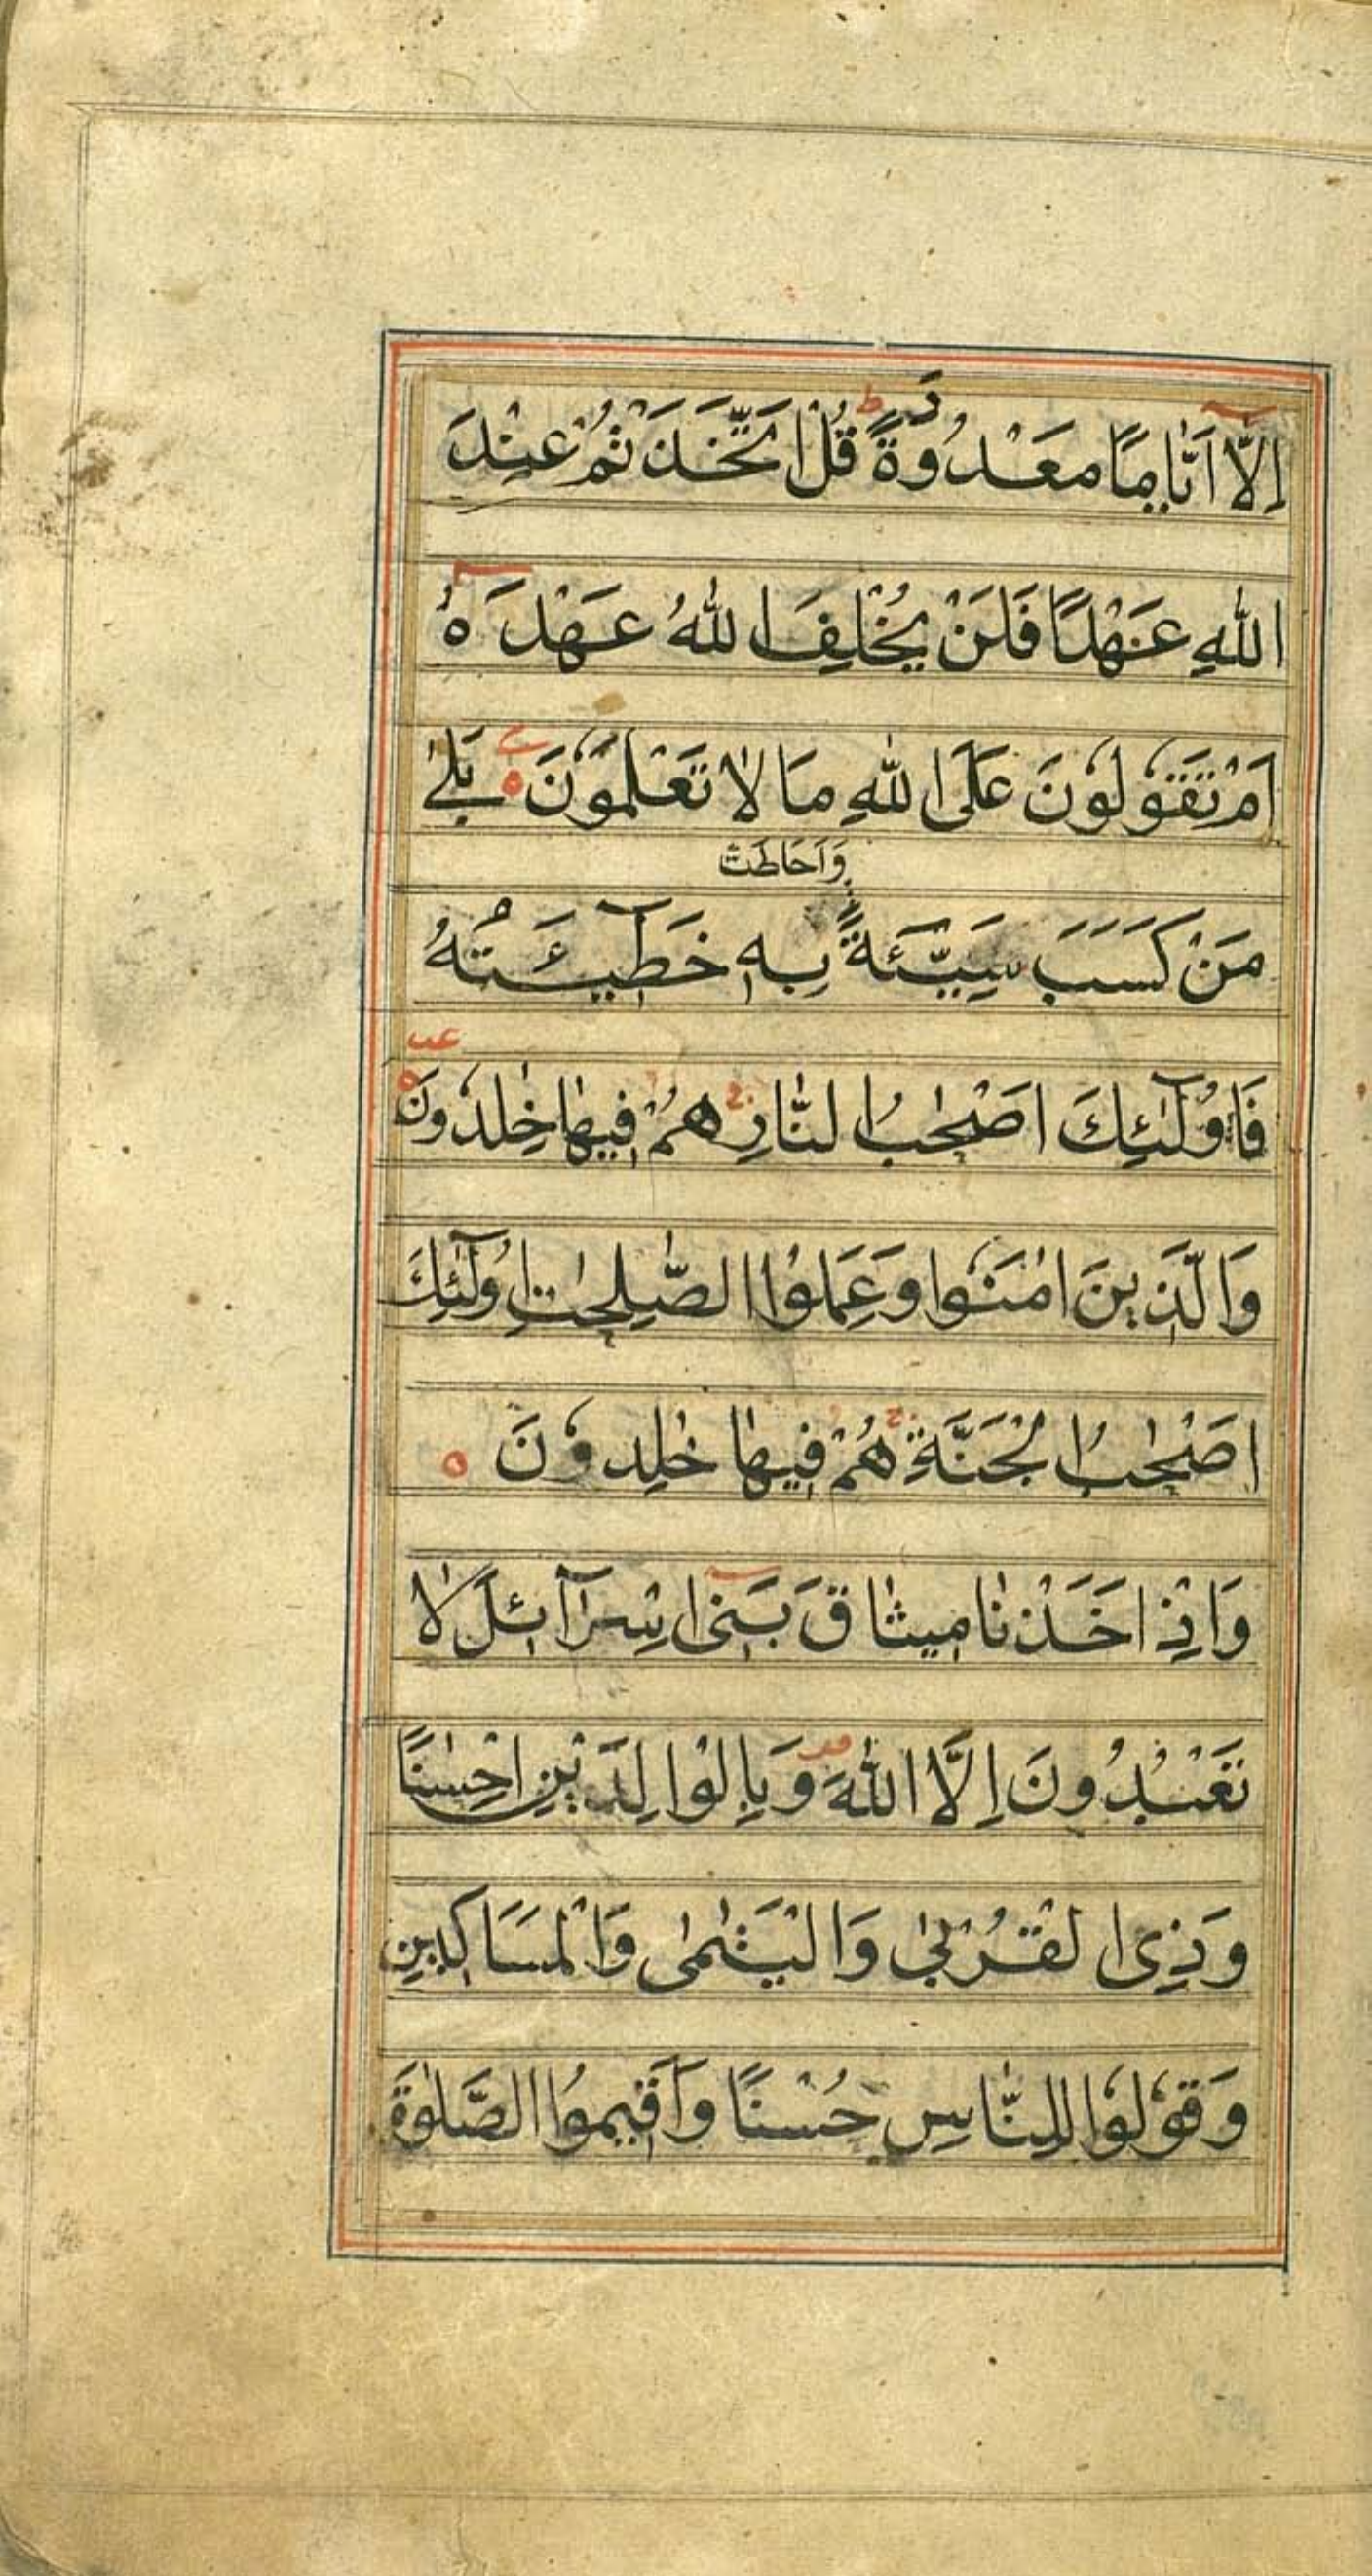 اِلَّا اَيَّامًا مَعْدُوْدَةً ط قُلْ اَتَّخَذْتُمْ عِنْدَ
اللهِ عَهْدًا فَلَنْ يُخْلِفَ اللهُ عَهْدَهُ
اَمْ تَقُوْلُوْنَ عَلَى اللهِ مَا لَا تَعْلَمُوْنَ ه بَلٰى
وَاَحَاطَتْ
مَنْ كَسَبَ سَيِّئَةً بِهٖ خَطِيْٓئَتُهُ
فَاُولٰٓئِكَ اَصْحٰبُ النَّارِ ج هُمْ فِيْهَا خٰلِدُوْنَ ه
وَالَّذِيْنَ اٰمَنُوْا وَعَمِلُوا الصّٰلِحٰتِ اُولٰٓئِكَ
اَصْحٰبُ الْجَنَّةِ ج هُمْ فِيْهَا خٰلِدُوْنَ ه
وَاِذْ اَخَذْنَا مِيْثَاقَ بَنِيْ اِسْرَآئِلَ لَا
تَعْبُدُوْنَ اِلَّا اللهَ وَبِالْوَالِدَيْنِ اِحْسٰنًا
وَذِي الْقُرْبٰى وَالْيَتٰمٰى وَالْمَسَاكِيْنِ
وَقُوْلُوْا لِلنَّاسِ حُسْنًا وَاَقِيْمُوا الصَّلٰوةَ